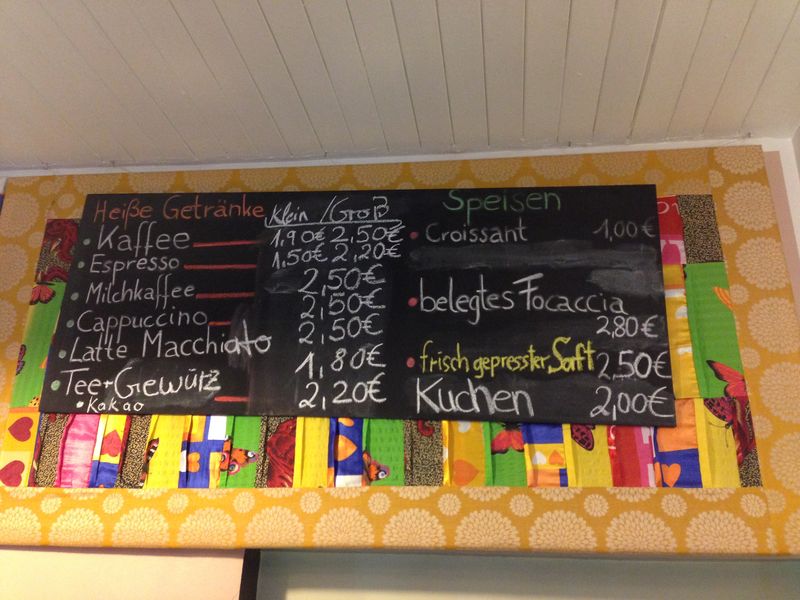 Heiße Getränke klein / Groß
Kaffee 1,90€ 2,50€
Espresso 1,50€ 2,20€
Milchkaffee 2,50€
Cappuccino 2,50€
Latte Macchiato 2,50€
Tee+Gewürz 1,80€
Kakao 2,20€
Speisen
Croissant 1,00€
belegtes Focaccia
2,80€
frisch gepresster Saft 2,50€
Kuchen 2,00€